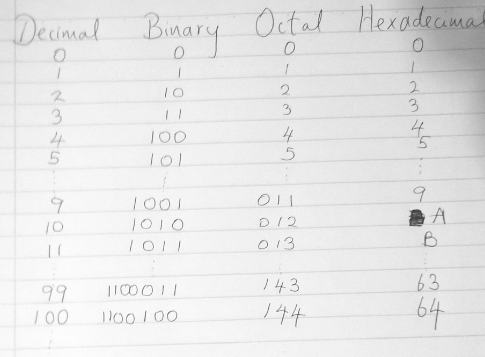 Decimal Binary Octal Hexadecimal
0 0 0 0
1 1 1 1
2 10 2 2
3 11 3 3
4 100 4 4
5 101 5 5
9 1001 011 9
10 1010 012 A
11 1011 013 B
99 1100011 143 63
100 1100100 144 64